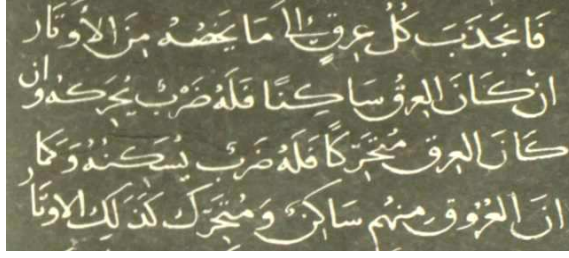 فَانجَذَبَ كُلُ عِرقٍ اِلىَ مَا يَخصُهُ مِنَ الأَوتَار
انْ كَانَ العِرقُ سَاكِنًا فَلَهُ ضَربٌ يُحَرِكهُ وان
كَانَ العِرق مُتحَرّكًا فَلَهُ ضَربٌ يُسَكِنُهُ وَكمَا
انَ العُرُوق مِنهُم سَاكنٌ وَمُتحَرّك كَذلِكَ الاوتَار